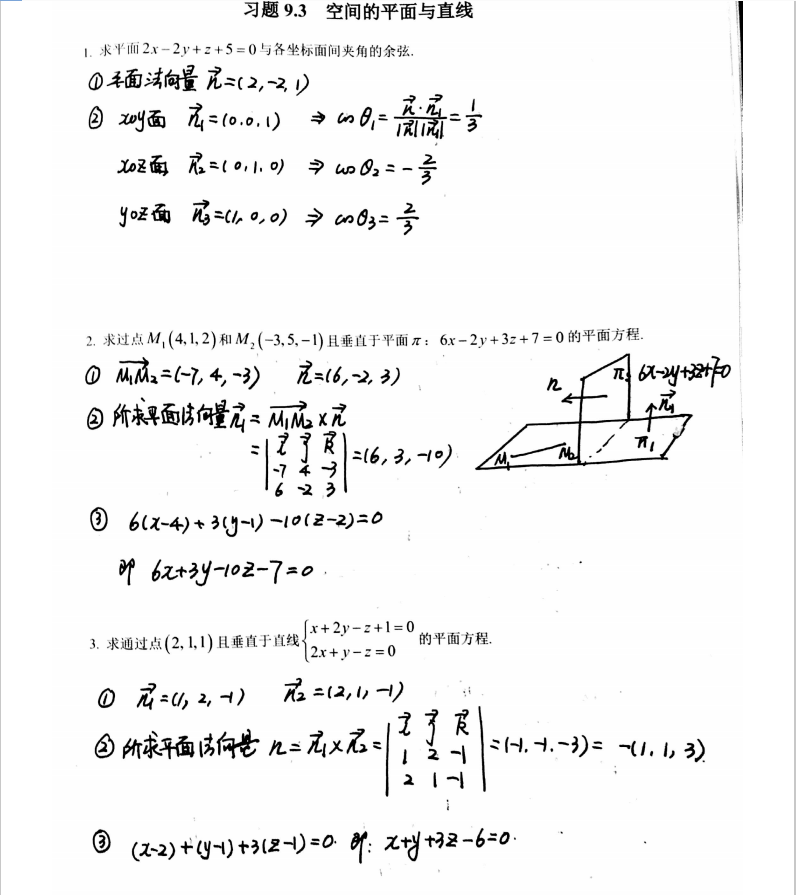 习题 9.3 空间的平面与直线
1. 求平面 2x−2y+z+5=0 与各坐标面间夹角的余弦.
① 平面法向量 n⃗=(2,-2,1)
② xoy面 n⃗₁=(0.0.1) ⇒ cosθ₁= n⃗·n⃗₁/|n⃗||n⃗₁| = 1/3
xoz面 n⃗₂=(0,1.0) ⇒ cosθ₂=-2/3
yoz面 n⃗₃=(1,0,0) ⇒ cosθ₃=2/3
2. 求过点 M₁(4,1,2) 和 M₂(−3,5,−1) 且垂直于平面 π： 6x−2y+3z+7=0 的平面方程.
① M₁M₂=(-7,4,-3) n⃗=(6,-2,3)
n π: 6x-2y+3z+7=0
② 所求平面法向量 n⃗₁= M₁M₂×n⃗
n⃗₁
M₁ M₂ π₁
= | i⃗ j⃗ k⃗ | =(6,3,-10)
-7 4 -3
6 -2 3
③ 6(x-4)+3(y-1)-10(z-2)=0
即 6x+3y-10z-7=0
3. 求通过点(2,1,1)且垂直于直线 { x+2y−z+1=0 的平面方程.
2x+y−z=0
① n⃗₁=(1,2,-1) n⃗₂=(2,1,-1)
② 所求平面法向量 n=n⃗₁×n⃗₂= | i⃗ j⃗ k⃗ | =(-1.-1.-3)= -(1.1,3)
1 2 -1
2 1 -1
③ (x-2)+(y-1)+3(z-1)=0. 即: x+y+3z-6=0.